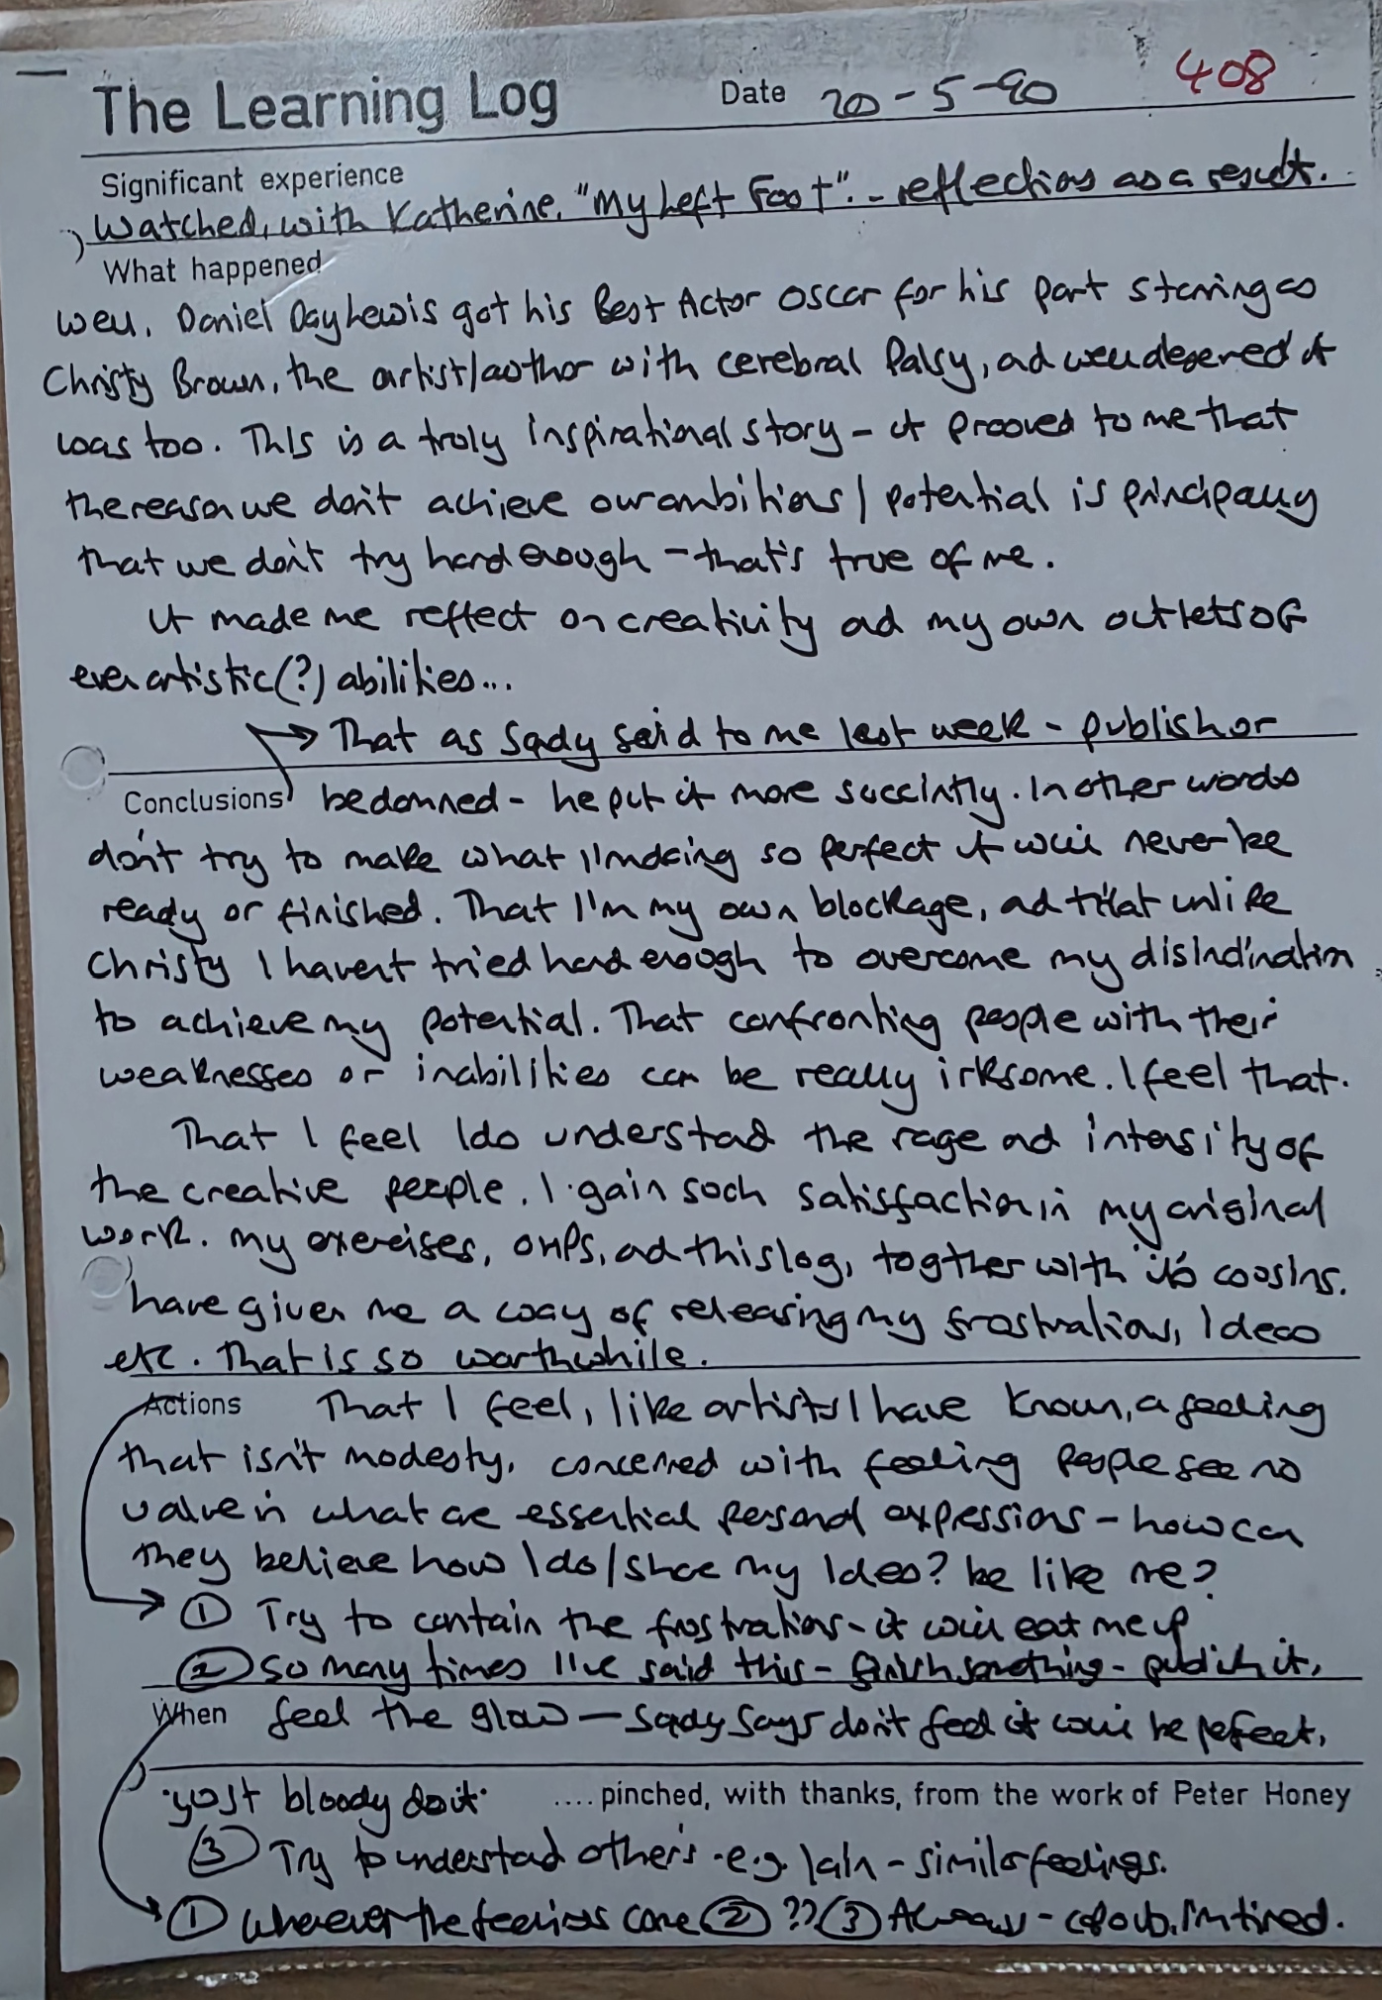 The Learning Log Date 20-5-90 408
Significant experience
Watched, with Katherine, "My Left Foot". - reflections as a result.
What happened
Well. Daniel Day Lewis got his Best Actor Oscar for his part starring as
Christy Brown, the artist/author with cerebral Palsy, ad well deserved it
was too. This is a truly inspirational story - it prooved to me that
the reason we don't achieve our ambitions / potential is principally
that we don't try hard enough - that's true of me.
It made me reflect on creativity ad my own outlets of
ever artistic (?) abilities...
→ That as Sqdy said to me last week - publish or
Conclusions be damned - he put it more succintly. In other words
don't try to make what I'm doing so perfect it will never be
ready or finished. That I'm my own blockage, ad that unlike
Christy I havent tried hard enough to overcome my disinclination
to achieve my potential. That confronting people with their
weaknesses or inabilities can be really irksome. I feel that.
That I feel I do understad the rage ad intensity of
the creative people. I gain such satisfaction in my original
work. My exercises, OHPs, ad this log, togther with its cousins.
have given me a way of releasing my frustrations, Ideas
etc. That is so worthwhile.
Actions That I feel, like artists I have known, a feeling
that isn't modesty, concerned with feeling people see no
value in what are essential personal expressions - how can
they believe how I do/share my Ideas? be like me?
① Try to contain the frustrations - it will eat me up
② So many times I've said this - finish something - publish it,
When feel the glow - Sqdy says don't feel it will be perfect,
'just bloody do it' .... pinched, with thanks, from the work of Peter Honey
③ Try to understad others - e.g. Iain - similar feelings.
① Whenever the feelings come ② ?? ③ Always - I'm tired.